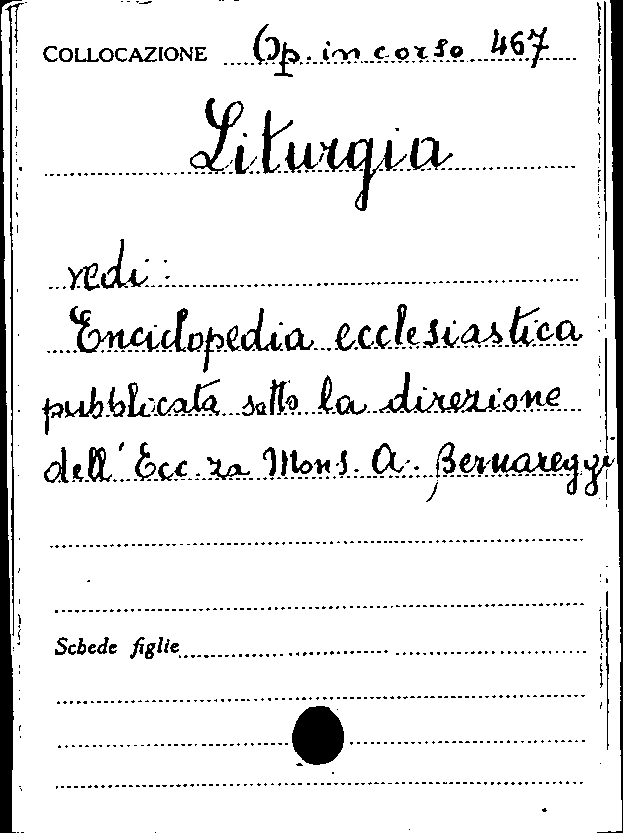 COLLOCAZIONE Op. in corso 467
Liturgia
vedi:
Enciclopedia ecclesiastica
pubblicata sotto la direzione
dell'Ecc.za Mons. A. Bernareggi
Schede figlie